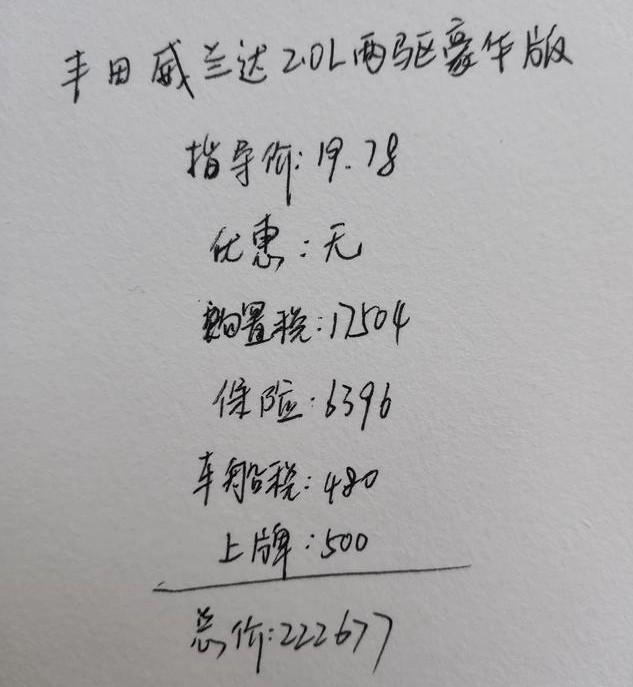 丰田威兰达2.0L两驱豪华版
指导价:19.78
优惠:无
购置税:17504
保险:6396
车船税:480
上牌:500
总价:222677